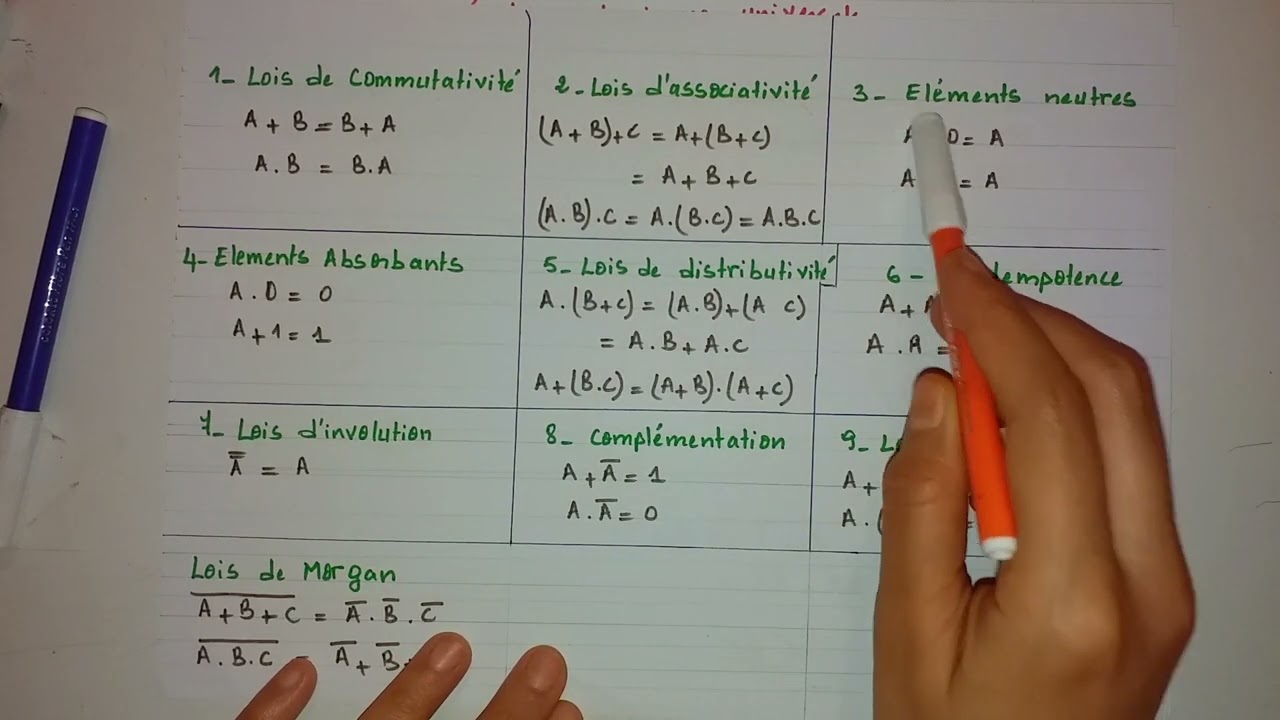 1- Lois de Commutativité
A + B = B + A
A . B = B . A
2- Lois d'associativité
(A + B) + C = A + (B + C)
= A + B + C
(A . B) . C = A . (B . C) = A . B . C
3- Eléments neutres
A 0 = A
A = A
4- Elements Absorbants
A . 0 = 0
A + 1 = 1
5- Lois de distributivité
A . (B + C) = (A . B) + (A C)
= A . B + A . C
A + (B . C) = (A + B) . (A + C)
6- dempotence
A +
A . A =
7- Lois d'involution
A̿ = A
8- Complémentation
A + A̅ = 1
A . A̅ = 0
9-
A +
A . (
Lois de Morgan
A̅ ̅+̅ ̅B̅ ̅+̅ ̅C̅ = A̅ . B̅ . C̅
A̅ ̅.̅ ̅B̅ ̅.̅ ̅C̅ = A̅ + B̅